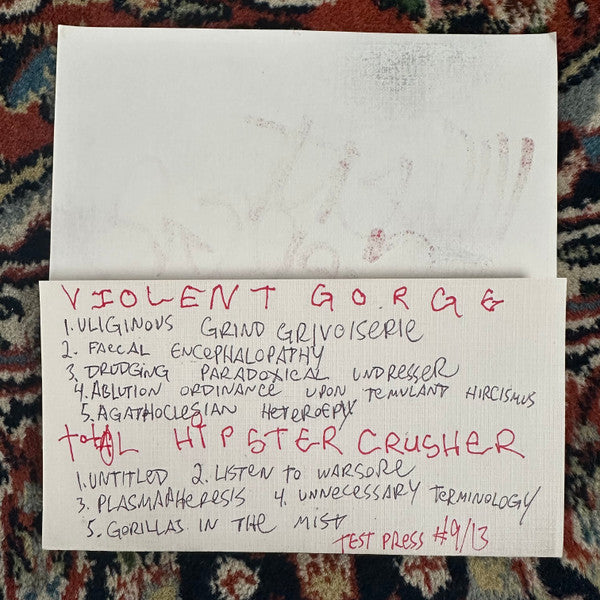 VIOLENT GORGE
1. ULIGINOUS GRIND GRIVOISERIE
2. FAECAL ENCEPHALOPATHY
3. DRUDGING PARADOXICAL UNDRESSER
4. ABLUTION ORDINANCE UPON TEMULANT HIRCISMUS
5. AGATHOCLESIAN HETEROEPY
TOTAL HIPSTER CRUSHER
1. UNTITLED 2. LISTEN TO WARSORE
3. PLASMAPHERESIS 4. UNNECESSARY TERMINOLOGY
5. GORILLAS IN THE MIST
TEST PRESS #9/13